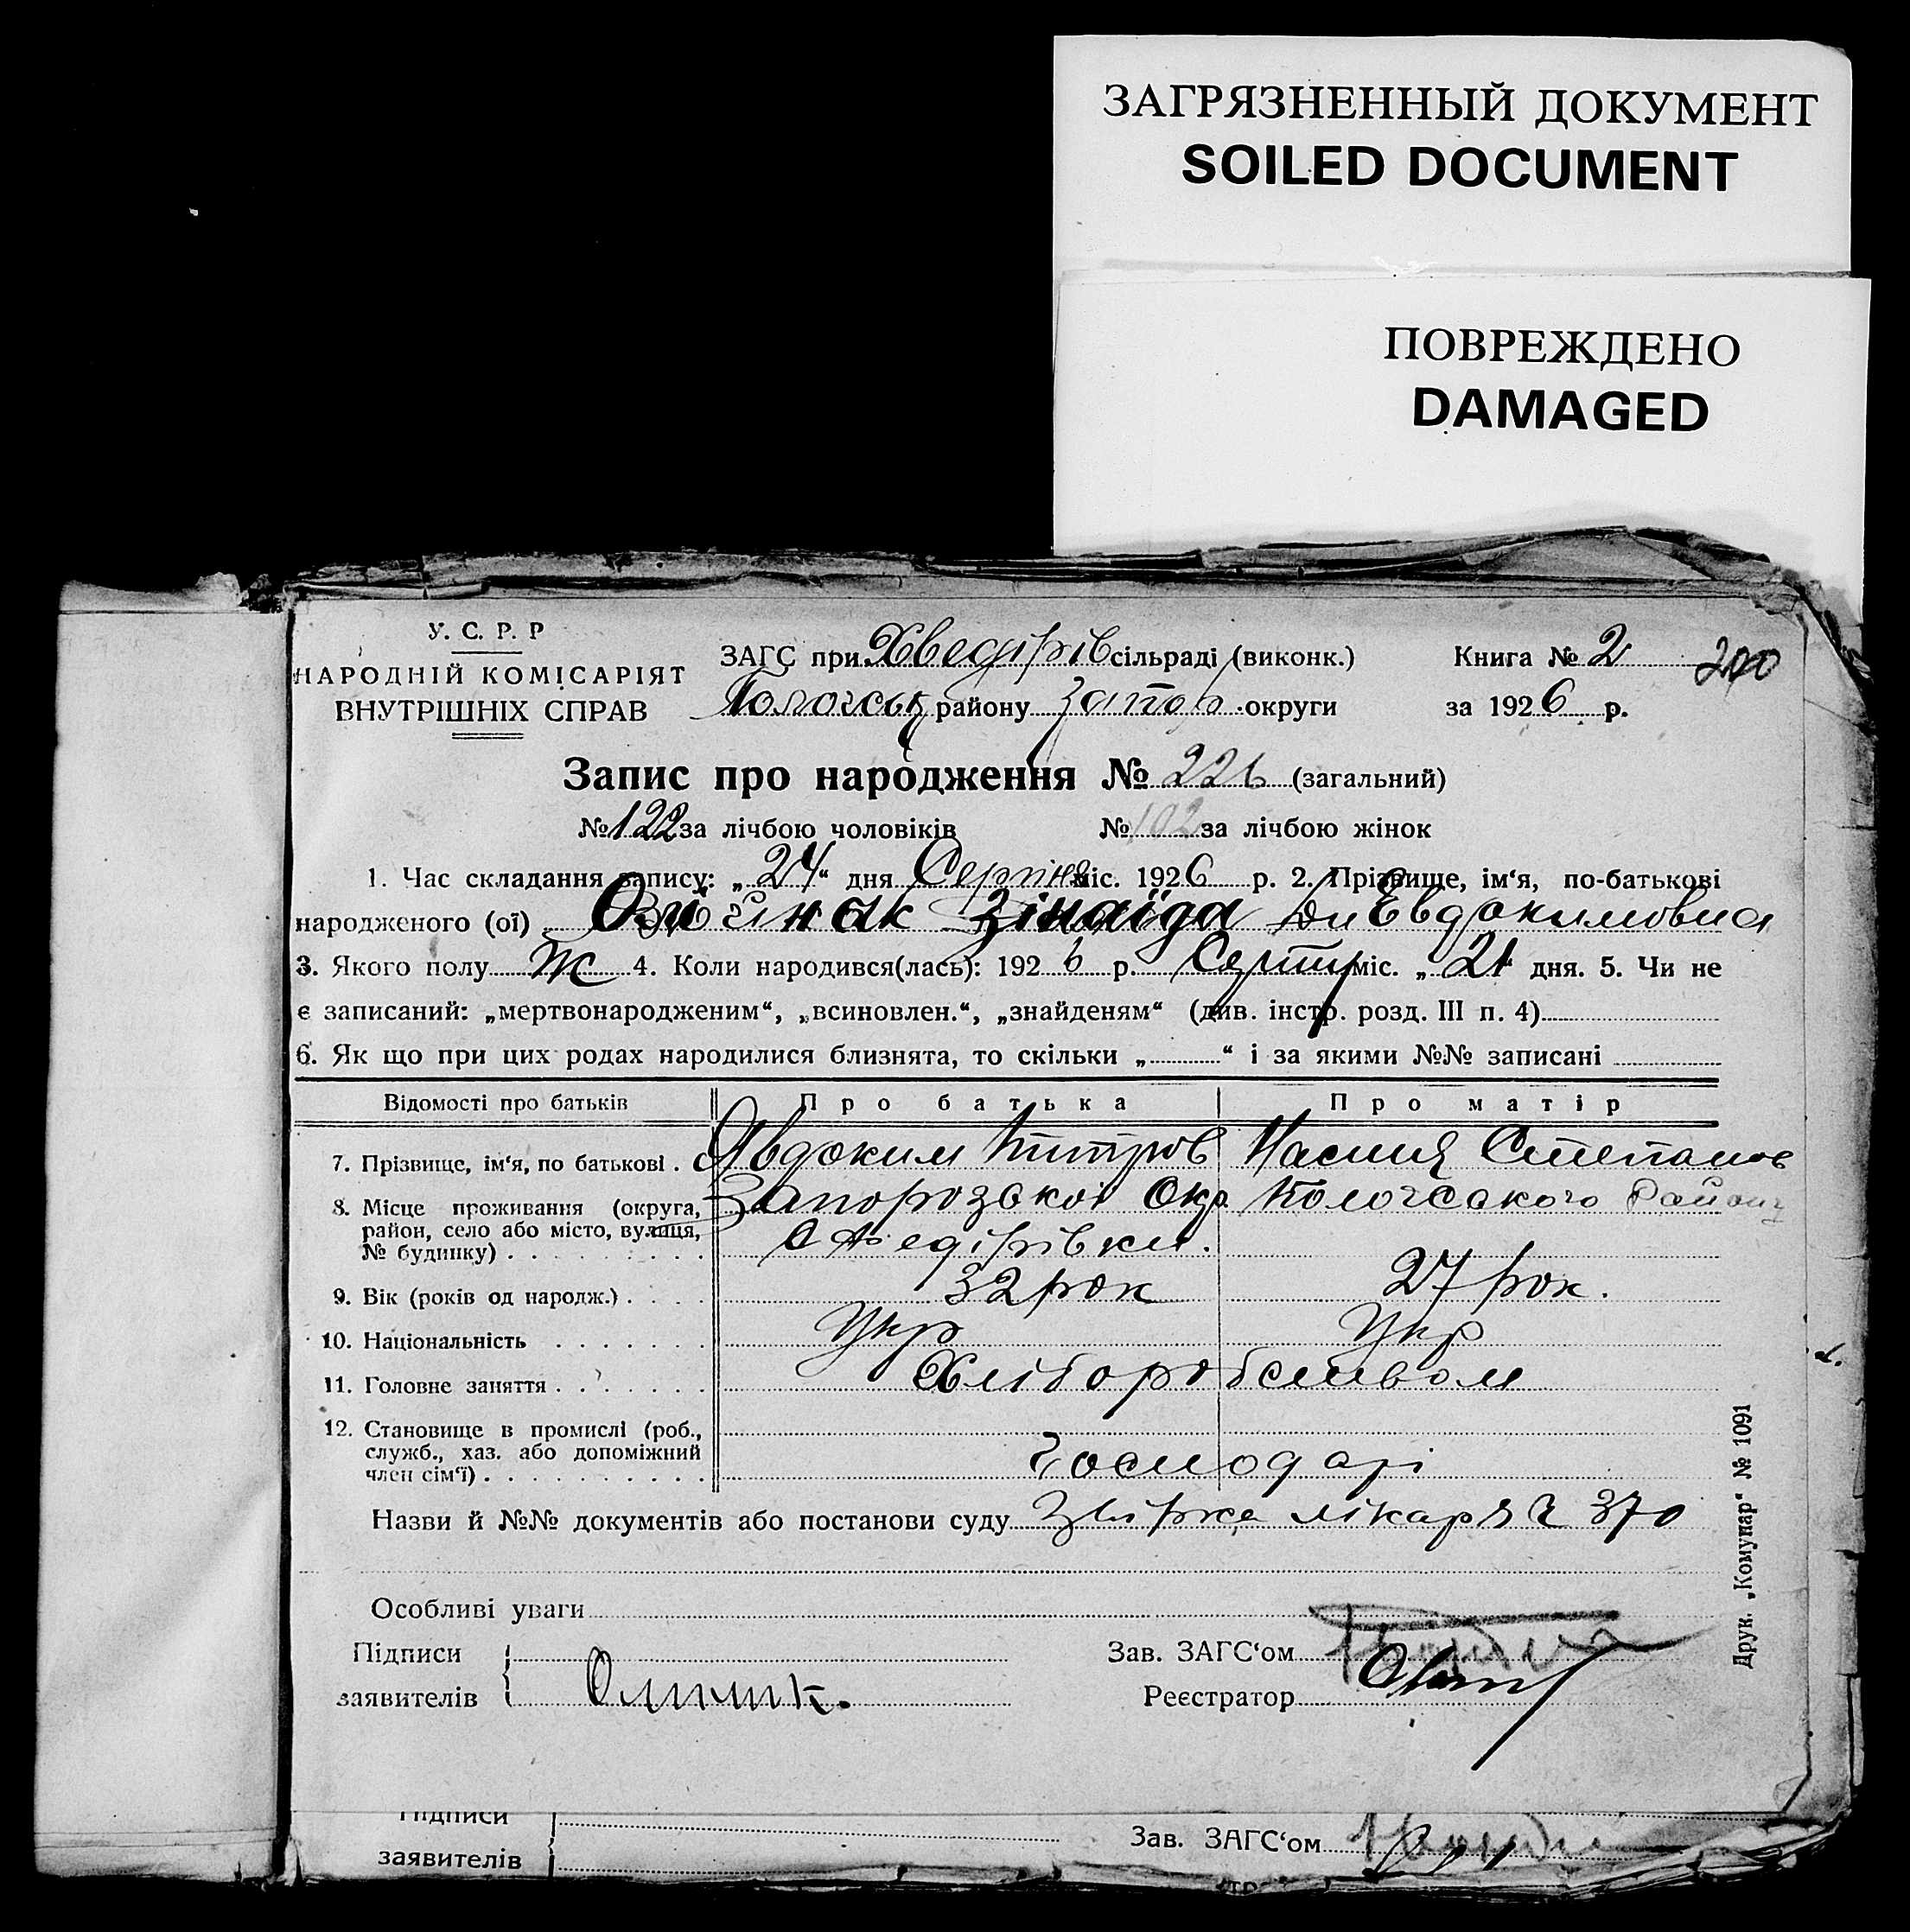 ЗАГРЯЗНЕННЫЙ ДОКУМЕНТ
SOILED DOCUMENT
ПОВРЕЖДЕНО
DAMAGED
У. С. Р. Р
НАРОДНІЙ КОМІСАРІЯТ
ВНУТРІШНІХ СПРАВ
ЗАГС при Хведірів сільраді (виконк.)
Книга № 2 200
району Запор. округи
за 1926 р.
Запис про народження № 226 (загальний)
№ 122 за лічбою чоловіків № 102 за лічбою жінок
1. Час складання запису: „24“ дня Серпня міс. 1926 р. 2. Прізвище, ім'я, по-батькові
народженого (ої) Зінаїда Евдокимовна
3. Якого полу Ж 4. Коли народився(лась): 1926 р. Серпн міс. „21“ дня. 5. Чи не
є записаний: „мертвонародженим“, „всиновлен.“, „знайденям“ (див. інстр. розд. III п. 4)
6. Як що при цих родах народилися близнята, то скільки „ “ і за якими №№ записані
Відомості про батьків Про батька Про матір
7. Прізвище, ім'я, по батькові . Явдоким Настя Степанов
8. Місце проживання (округа, район, село або місто, вулиця, № будинку) . Запорозской Окр. Пологського Району
с Федірівки.
9. Вік (років од народж.) . 32 рок 27 рок.
10. Національність Укр Укр
11. Головне заняття . Хліборобством
12. Становище в промислі (роб., служб., хаз. або допоміжний член сім'ї) . Господарі
Назви й №№ документів або постанови суду лікаря 370
Особливі уваги
Підписи
заявителів
Зав. ЗАГС'ом
Реєстратор
Друк. „Комунар“ № 1091
Підписи
заявителів
Зав. ЗАГС'ом